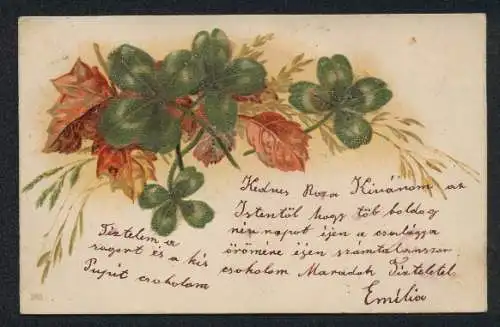 Kedves Roza Kivánom az
Istentöl hogy töb boldog
névnapot éjen a családja
örömére éjen számtalanszor
csokolom Maradok Tisztelétel
Emília
Tisztelem a
sogort és a kis
Pupit csokolom